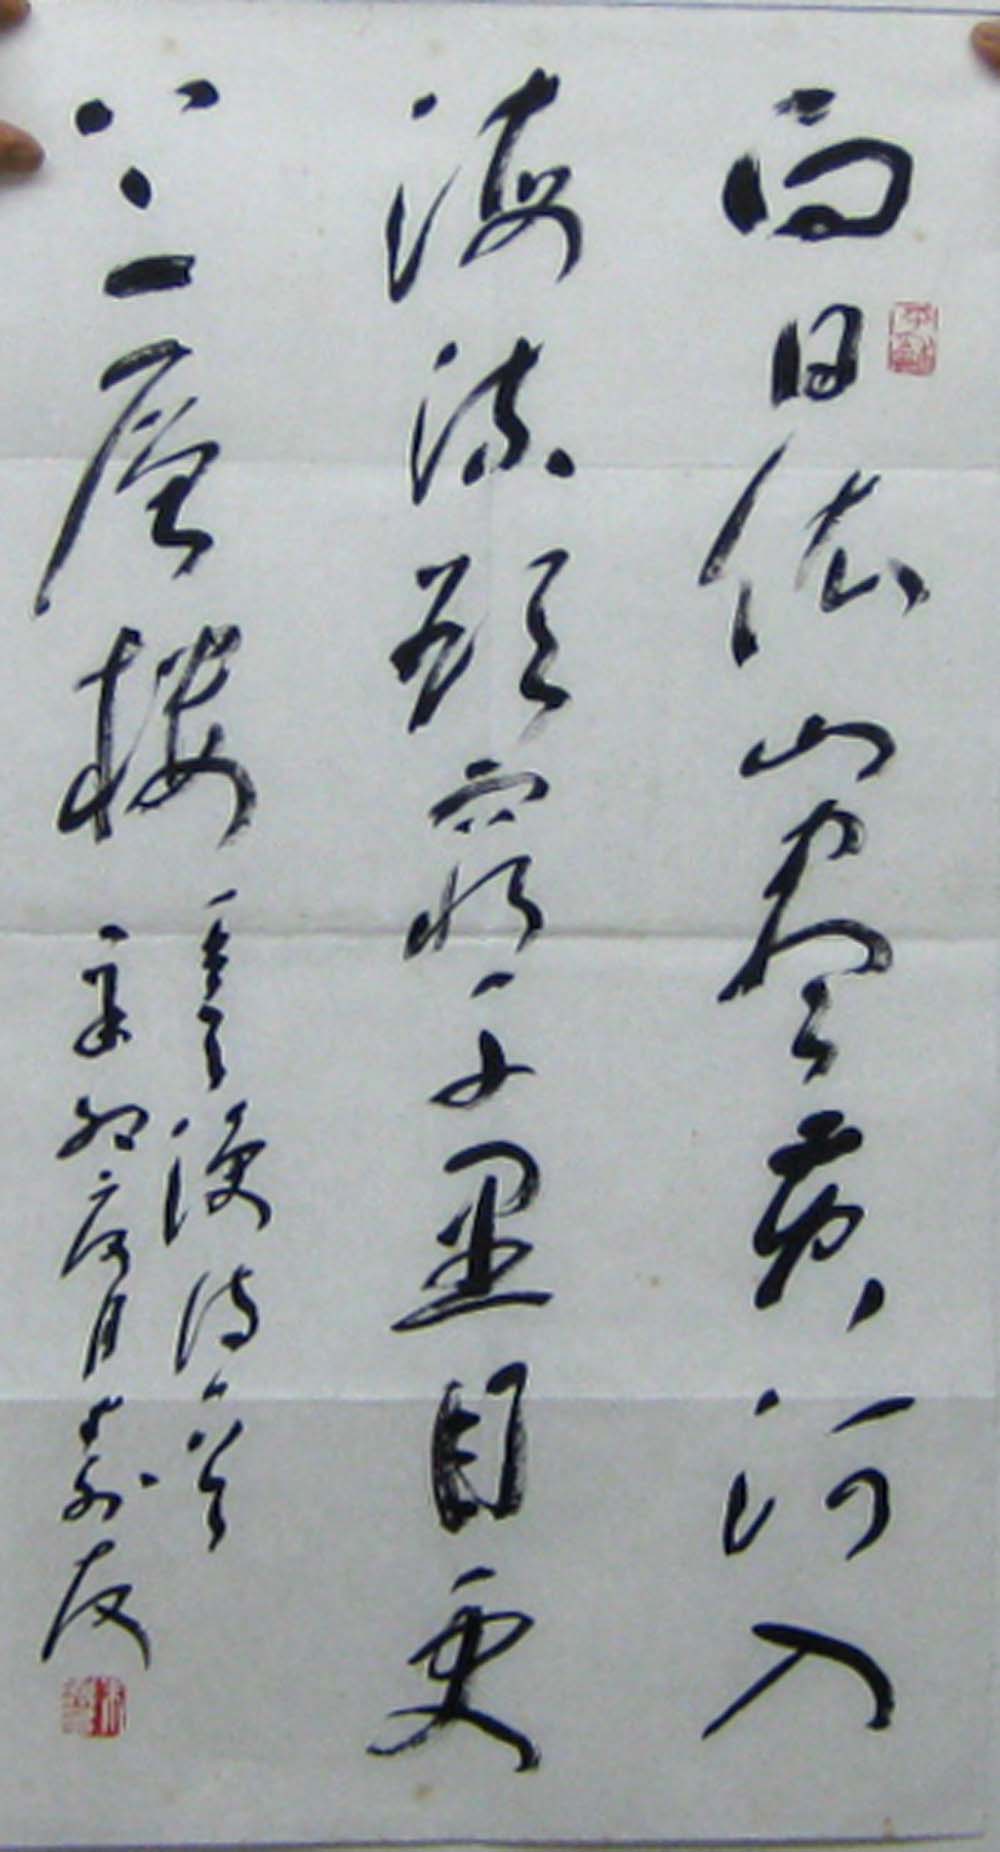 白日依山尽黄河入
海流欲穷千里目更
上一层楼
王之涣诗一首
辛卯月友